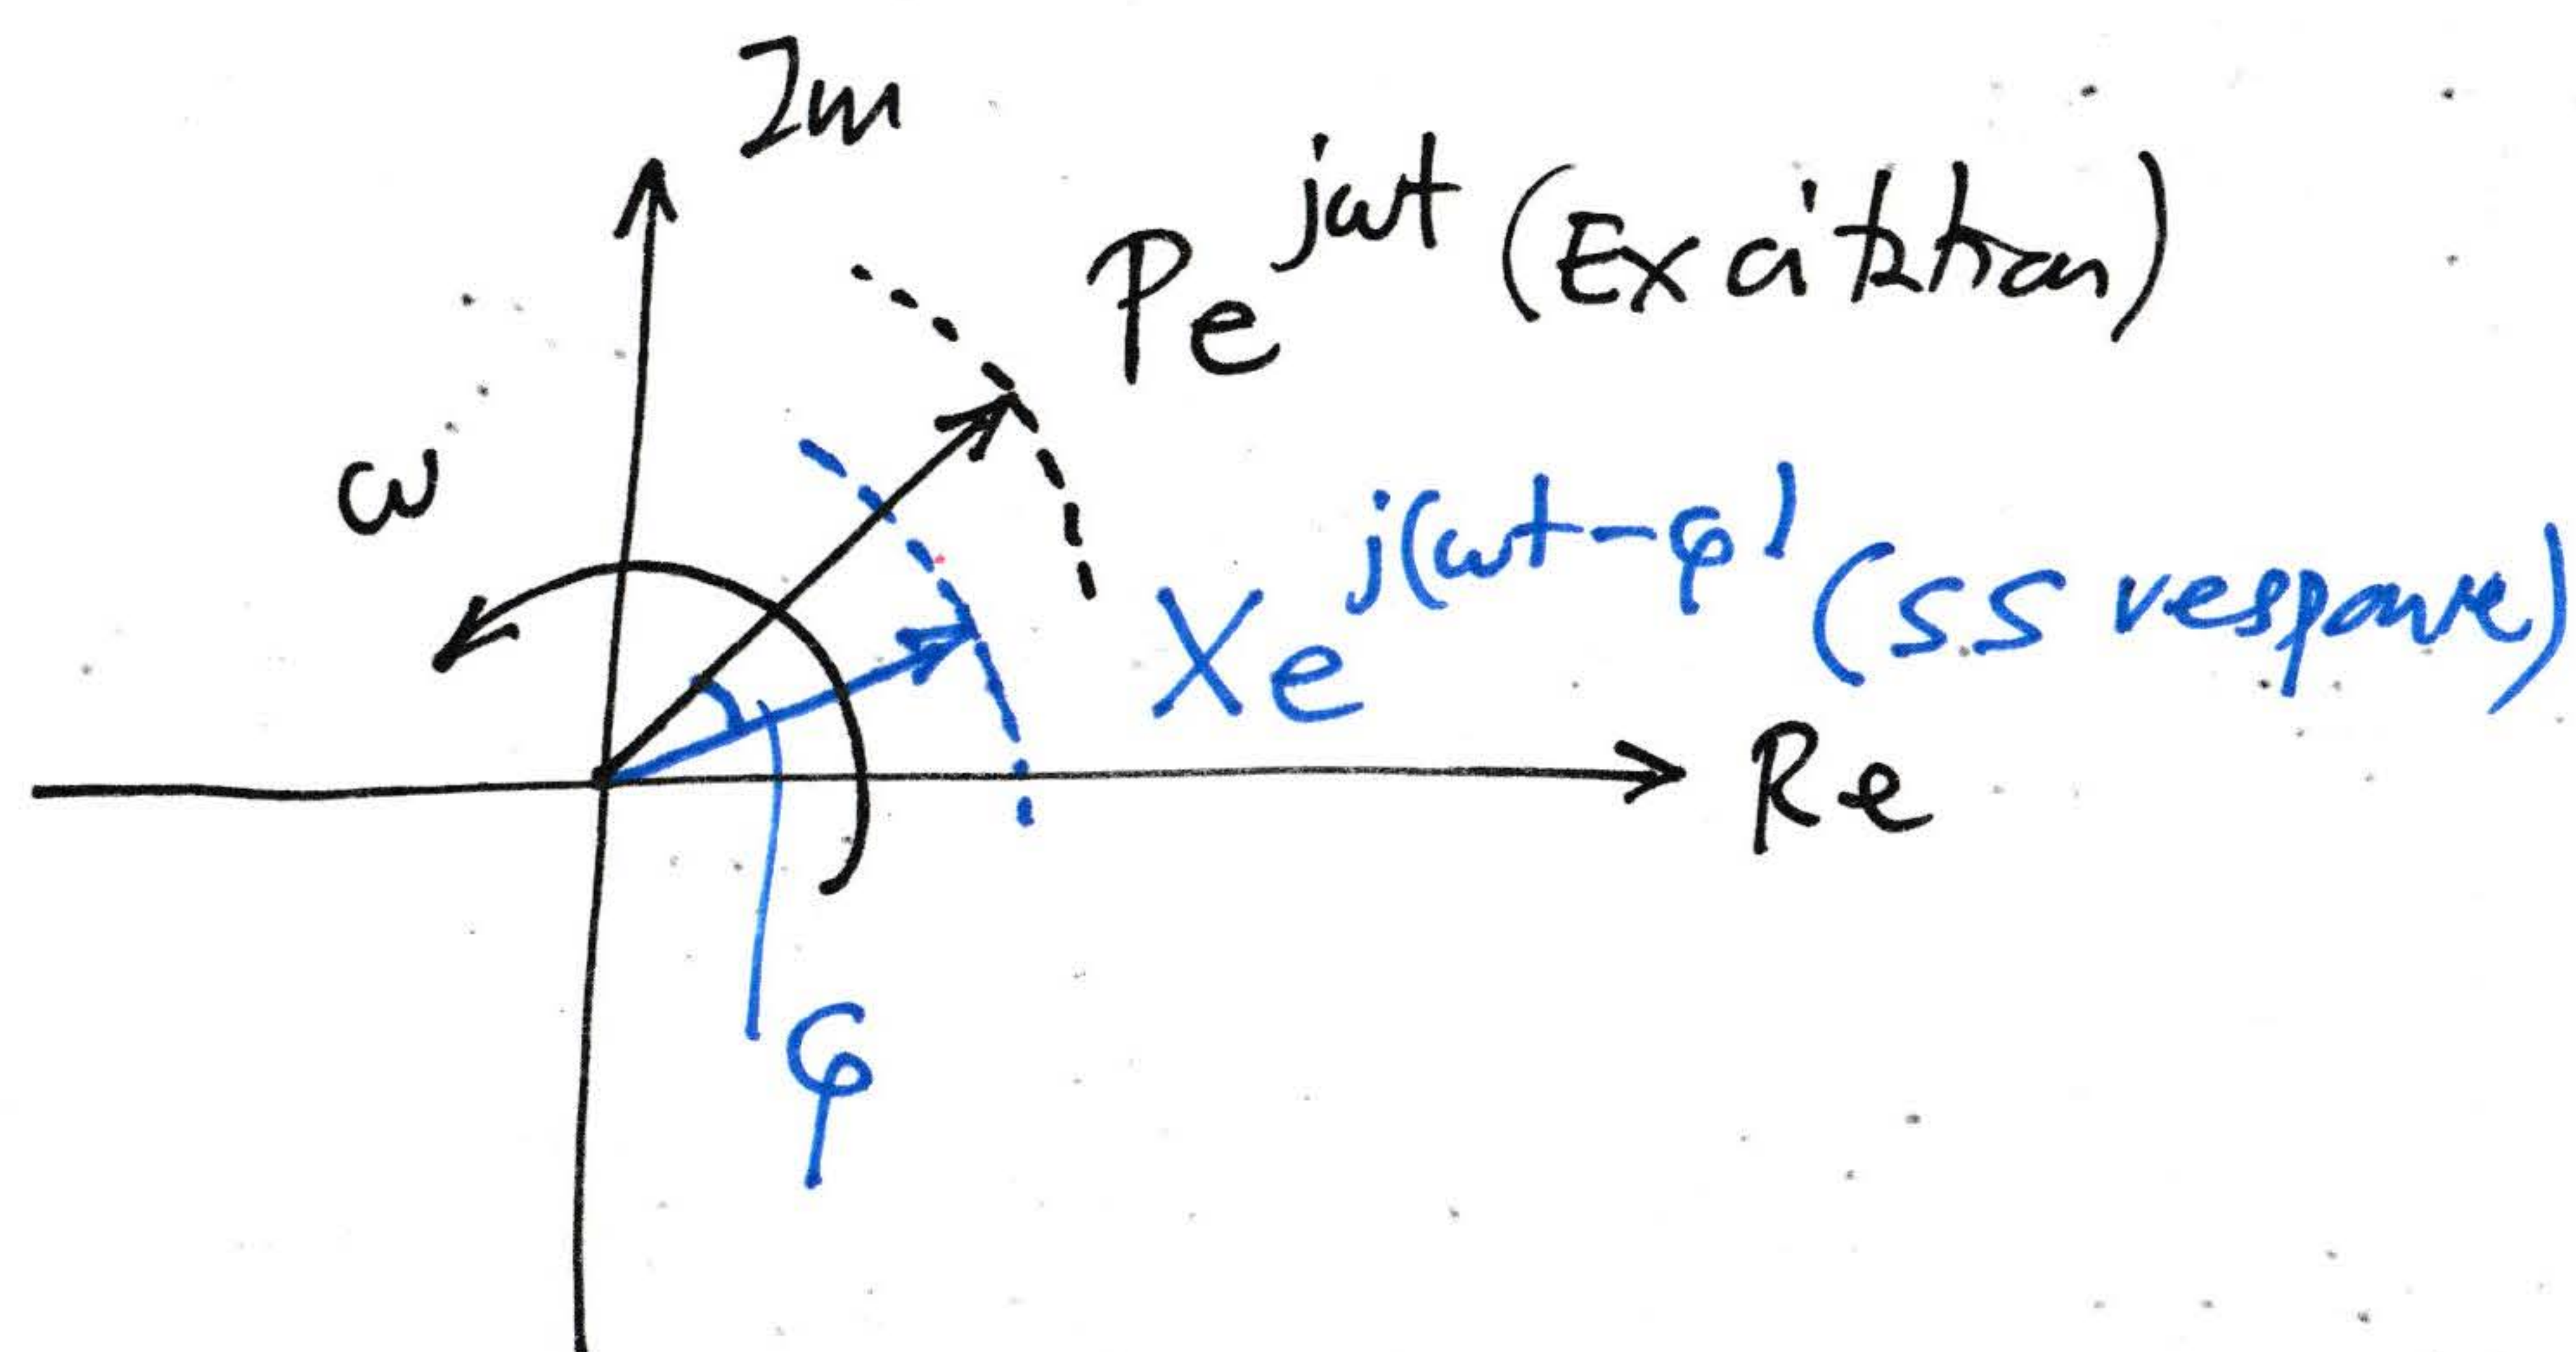 Im
Pe^{jωt} (Excitation)
ω
Xe^{j(ωt-φ)} (SS response)
Re
φ